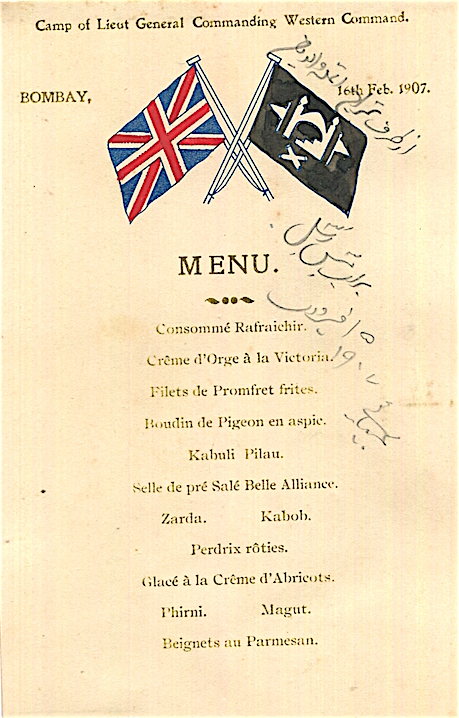 Camp of Lieut General Commanding Western Command.
BOMBAY, 16th Feb. 1907.
MENU.
Consommé Rafraichir.
Crême d'Orge à la Victoria.
Filets de Promfret frites.
Boudin de Pigeon en aspic.
Kabuli Pilau.
Selle de pré Salé Belle Alliance.
Zarda. Kabob.
Perdrix rôties.
Glacé à la Crême d'Abricots.
Phirni. Magut.
Beignets au Parmesan.
از طرف
۱۵
۱۹۰۷